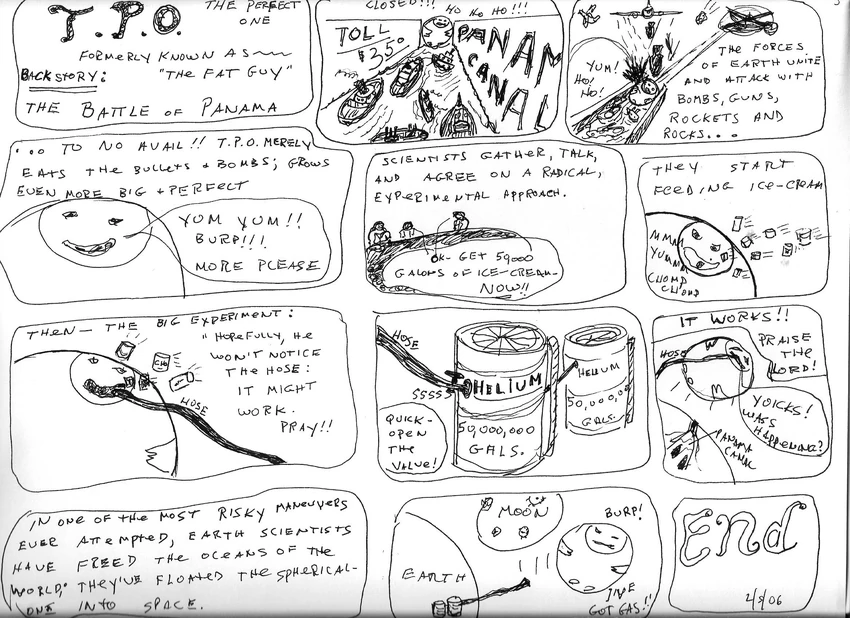 T.P.O.
THE PERFECT
ONE
FORMERLY KNOWN AS
"THE FAT GUY"
BACKSTORY:
THE BATTLE OF PANAMA
CLOSED!!!
HO HO HO!!!
TOLL
$3.50
PANAMA
CANAL
YUM!
HO!
HO!
THE FORCES
OF EARTH UNITE
AND ATTACK WITH
BOMBS, GUNS,
ROCKETS AND
ROCKS...
... TO NO AVAIL!! T.P.O. MERELY
EATS THE BULLETS + BOMBS; GROWS
EVEN MORE BIG + PERFECT
YUM YUM!!
BURP!!!
MORE PLEASE
SCIENTISTS GATHER, TALK,
AND AGREE ON A RADICAL,
EXPERIMENTAL APPROACH.
OK- GET 50,000
GALONS OF ICE-CREAM-
NOW!!
THEY START
FEEDING ICE-CREAM
MMMM
YUMMM
CHOMP
CHOMP
THEN — THE BIG EXPERIMENT:
"HOPEFULLY, HE
WON'T NOTICE
THE HOSE:
IT MIGHT
WORK.
PRAY!!
HOSE
HOSE
SSSSS
HELIUM
50,000,000
GALS.
HELIUM
50,000,000
GALS.
QUICK-
OPEN
THE
VALUE!
IT WORKS!!
PRAISE
THE
LORD!
HOSE
YOICKS!
WASS
HAPPENING?
PANAMA
CANAL
IN ONE OF THE MOST RISKY MANEUVERS
EVER ATTEMPTED, EARTH SCIENTISTS
HAVE FREED THE OCEANS OF THE
WORLD: THEY'VE FLOATED THE SPHERICAL-
ONE INTO SPACE.
MOON
BURP!
EARTH
I'VE
GOT GAS!!
End
2/5/06